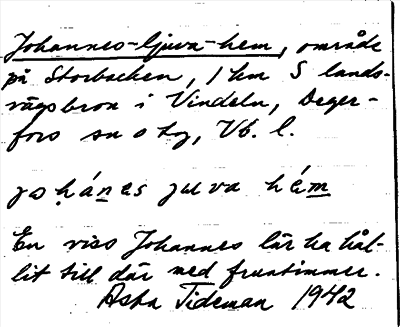 Johannes-ljuva-hem, område
på Storbacken, 1 km S lands-
vägsbron i Vindeln, Deger-
fors sn o hg, Vb. l.
johánes juva hém
En viss Johannes lär ha hål-
lit till där med fruntimmer.
Aska Tideman 1942